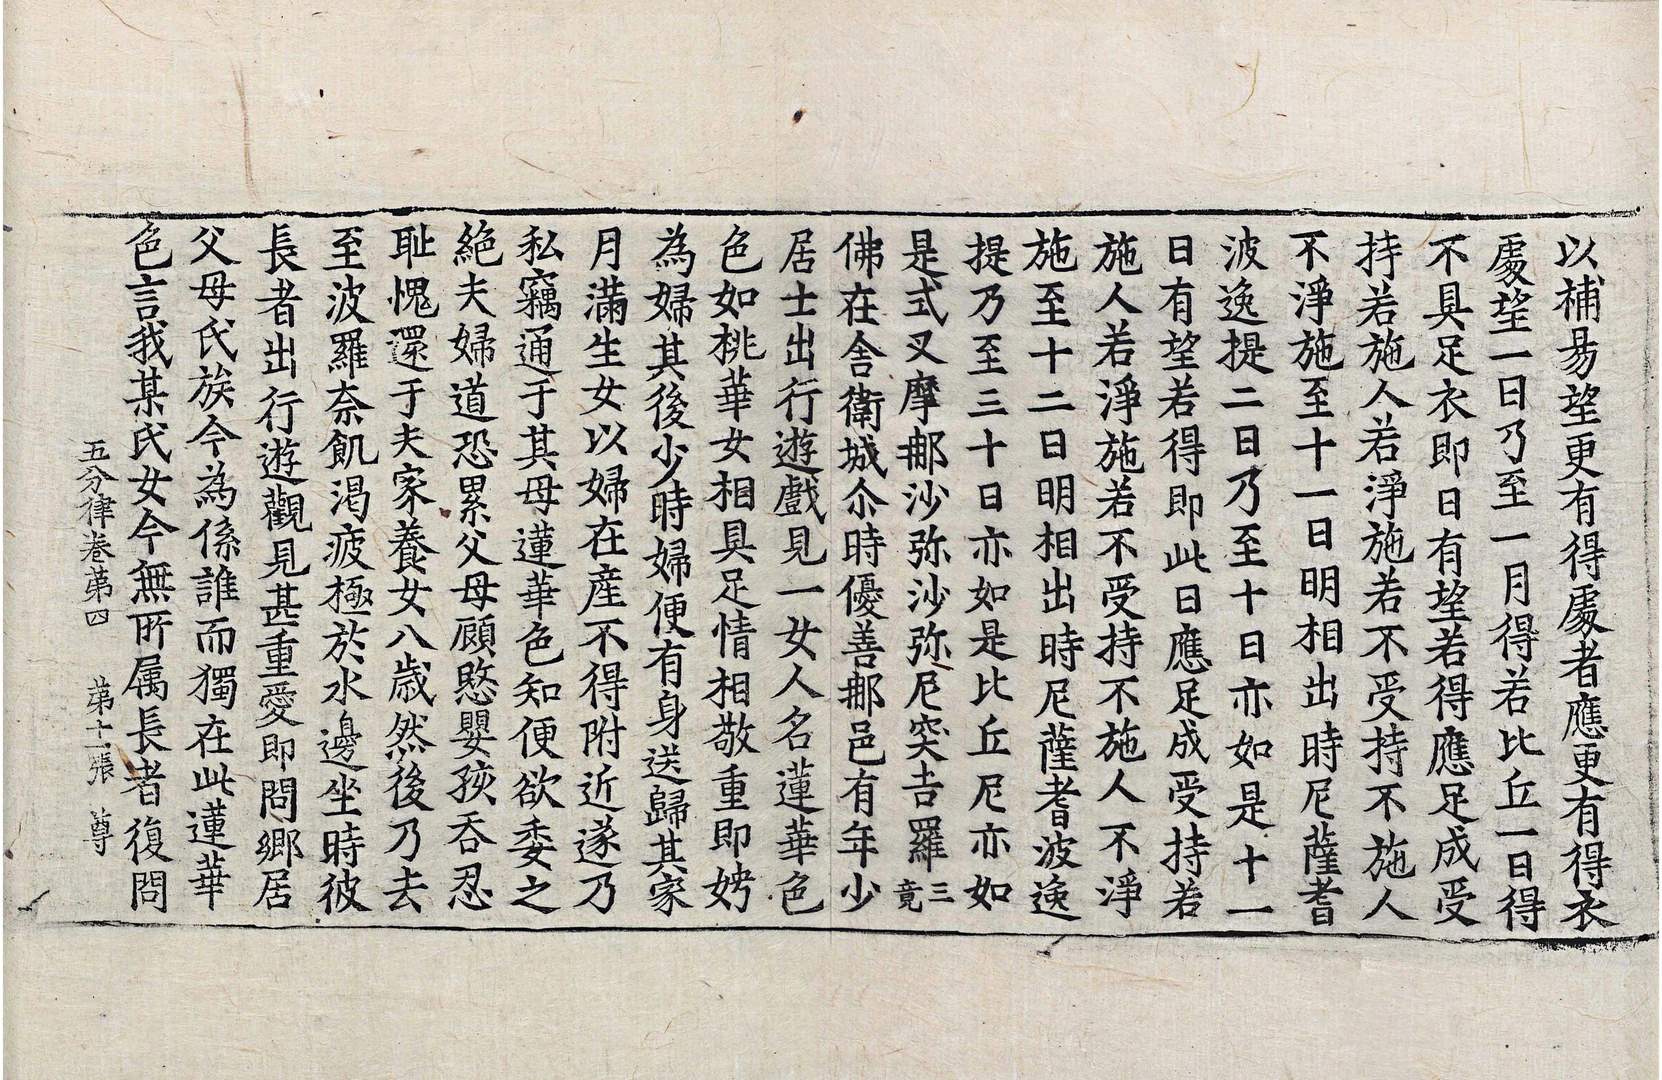 以補昜望更有得處者應更有得衣
處望一日乃至一月得若比丘一日得
不具足衣即日有望若得應足成受
持若施人若淨施若不受持不施人
不淨施至十一日明相出時尼薩耆
波逸提二日乃至十日亦如是十一
日有望若得即此日應足成受持若
施人若淨施若不受持不施人不淨
施至十二日明相出時尼薩耆波逸
提乃至三十日亦如是比丘尼亦如
是式叉摩那沙弥沙弥尼突吉羅三竟
佛在舍衛城尒時優善那邑有年少
居士出行遊戲見一女人名蓮華色
色如桃華女相具足情相敬重即娉
為婦其後少時婦便有身送歸其家
月滿生女以婦在産不得附近遂乃
私竊通于其母蓮華色知便欲委之
絕夫婦道恐累父母顧愍嬰孩吞忍
耻愧還于夫家養女八歲然後乃去
至波羅奈飢渴疲極於水邊坐時彼
長者出行遊觀見甚重愛即問鄉居
父母氏族今為係誰而獨在此蓮華
色言我某氏女今無所属長者復問
五分律卷第四 第十一張 尊